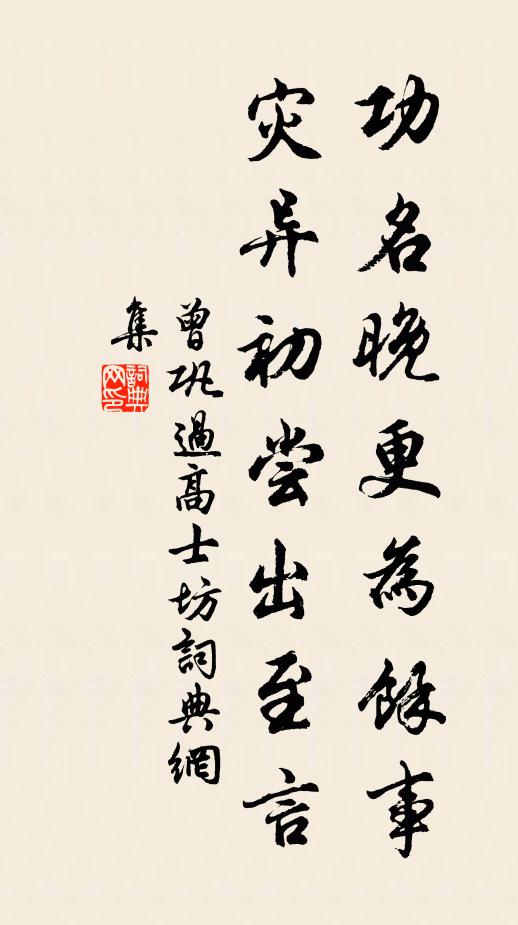 功名晚更為餘事
灾异初尝出至言
曾巩過高士坊詞典網
集
詞典網印